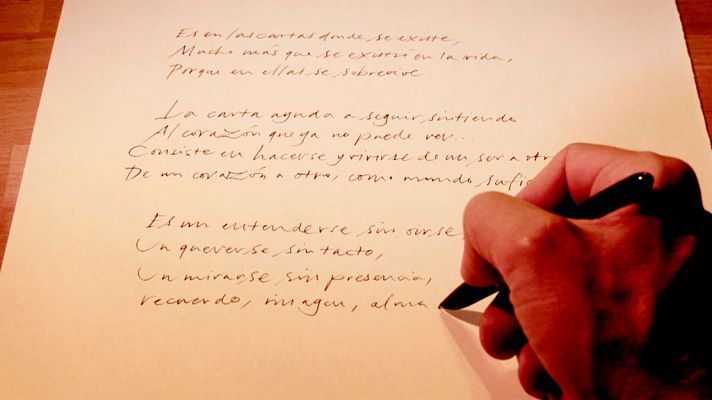 Es en las cartas donde se existe,
Mucho más que se existió en la vida,
Porque en ellas se sobrevive
La carta ayuda a seguir sintiendo
Al corazón que ya no puede ver...
Consiste en hacerse y vivirse de un ser a otr
De un corazón a otro, como mundo sufic
Es un entenderse sin oirse
Un quererse sin tacto,
Un mirarse sin presencia,
recuerdo, imagen, alma